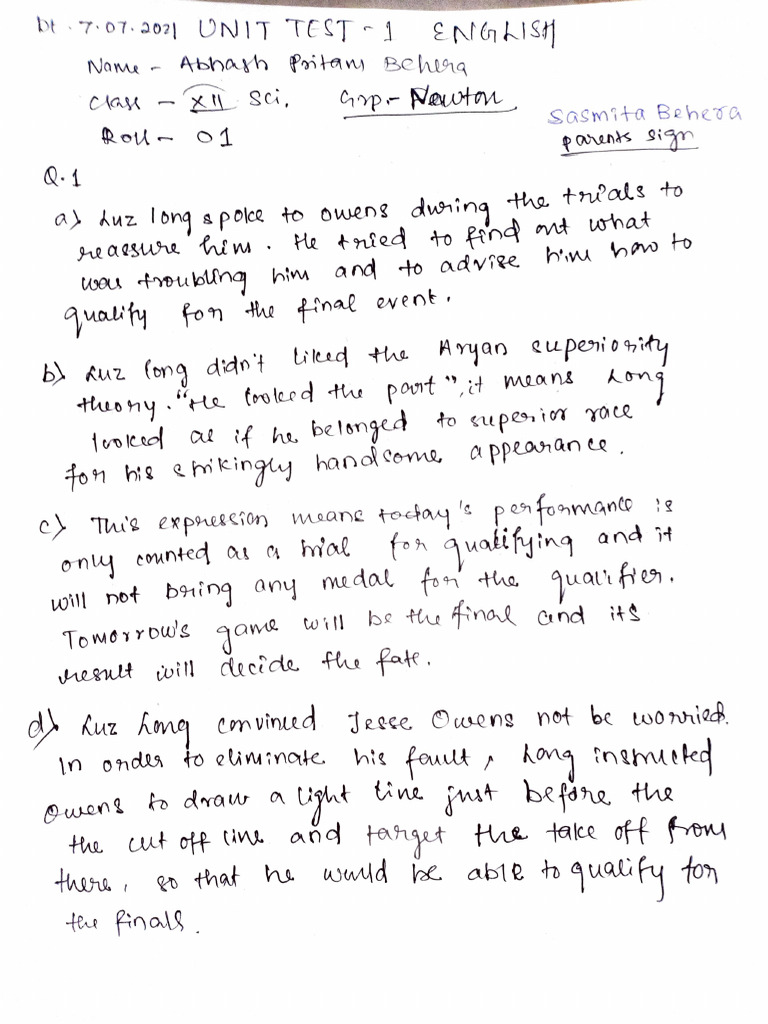 Dt. 7.07.2021 UNIT TEST-1 ENGLISH
Name - Abhash Pritam Behera
Class - XII Sci. Grp.- Newton
Roll - 01
Sasmita Behera
parents sign
Q.1
a) Luz long spoke to owens during the trials to
reassure him. He tried to find out what
was troubling him and to advise him how to
qualify for the final event.
b) Luz long didn't liked the Aryan superiority
theory. "He looked the part", it means Long
looked as if he belonged to superior race
for his strikingly handsome appearance.
c) This expression means today's performance is
only counted as a trial for qualifying and it
will not bring any medal for the qualifier.
Tomorrow's game will be the final and its
result will decide the fate.
d) Luz Long convinced Jesse Owens not be worried.
In order to eliminate his fault, Long instructed
Owens to draw a light line just before the
the cut off line and target the take off from
there, so that he would be able to qualify for
the finals.